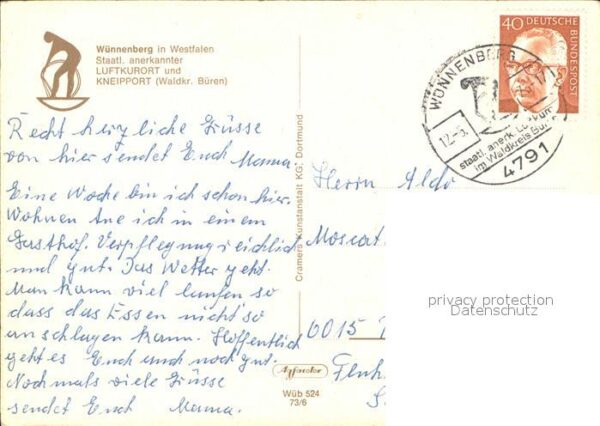 Wünnenberg in Westfalen
Staatl. anerkannter
LUFTKURORT und
KNEIPPORT (Waldkr. Büren)
Recht herzliche Grüsse
von hier sendet Euch Mama.
Eine Woche bin ich schon hier.
Wohnen tue ich in einem
Gasthof. Verpflegung reichlich
und gut. Das Wetter geht.
Man kann viel laufen so
dass das Essen nicht so
anschlagen kann. Hoffentlich
geht es Euch und noch gut.
Nochmals viele Grüsse
sendet Euch Mama.
Cramers Kunstanstalt KG. Dortmund
Wüb 524
73/6
40 DEUTSCHE
BUNDESPOST
WÜNNENBERG
12.-6.
staatl. anerk.
im Waldkreis
4791
Herrn Aldo
6015
privacy protection
Datenschutz